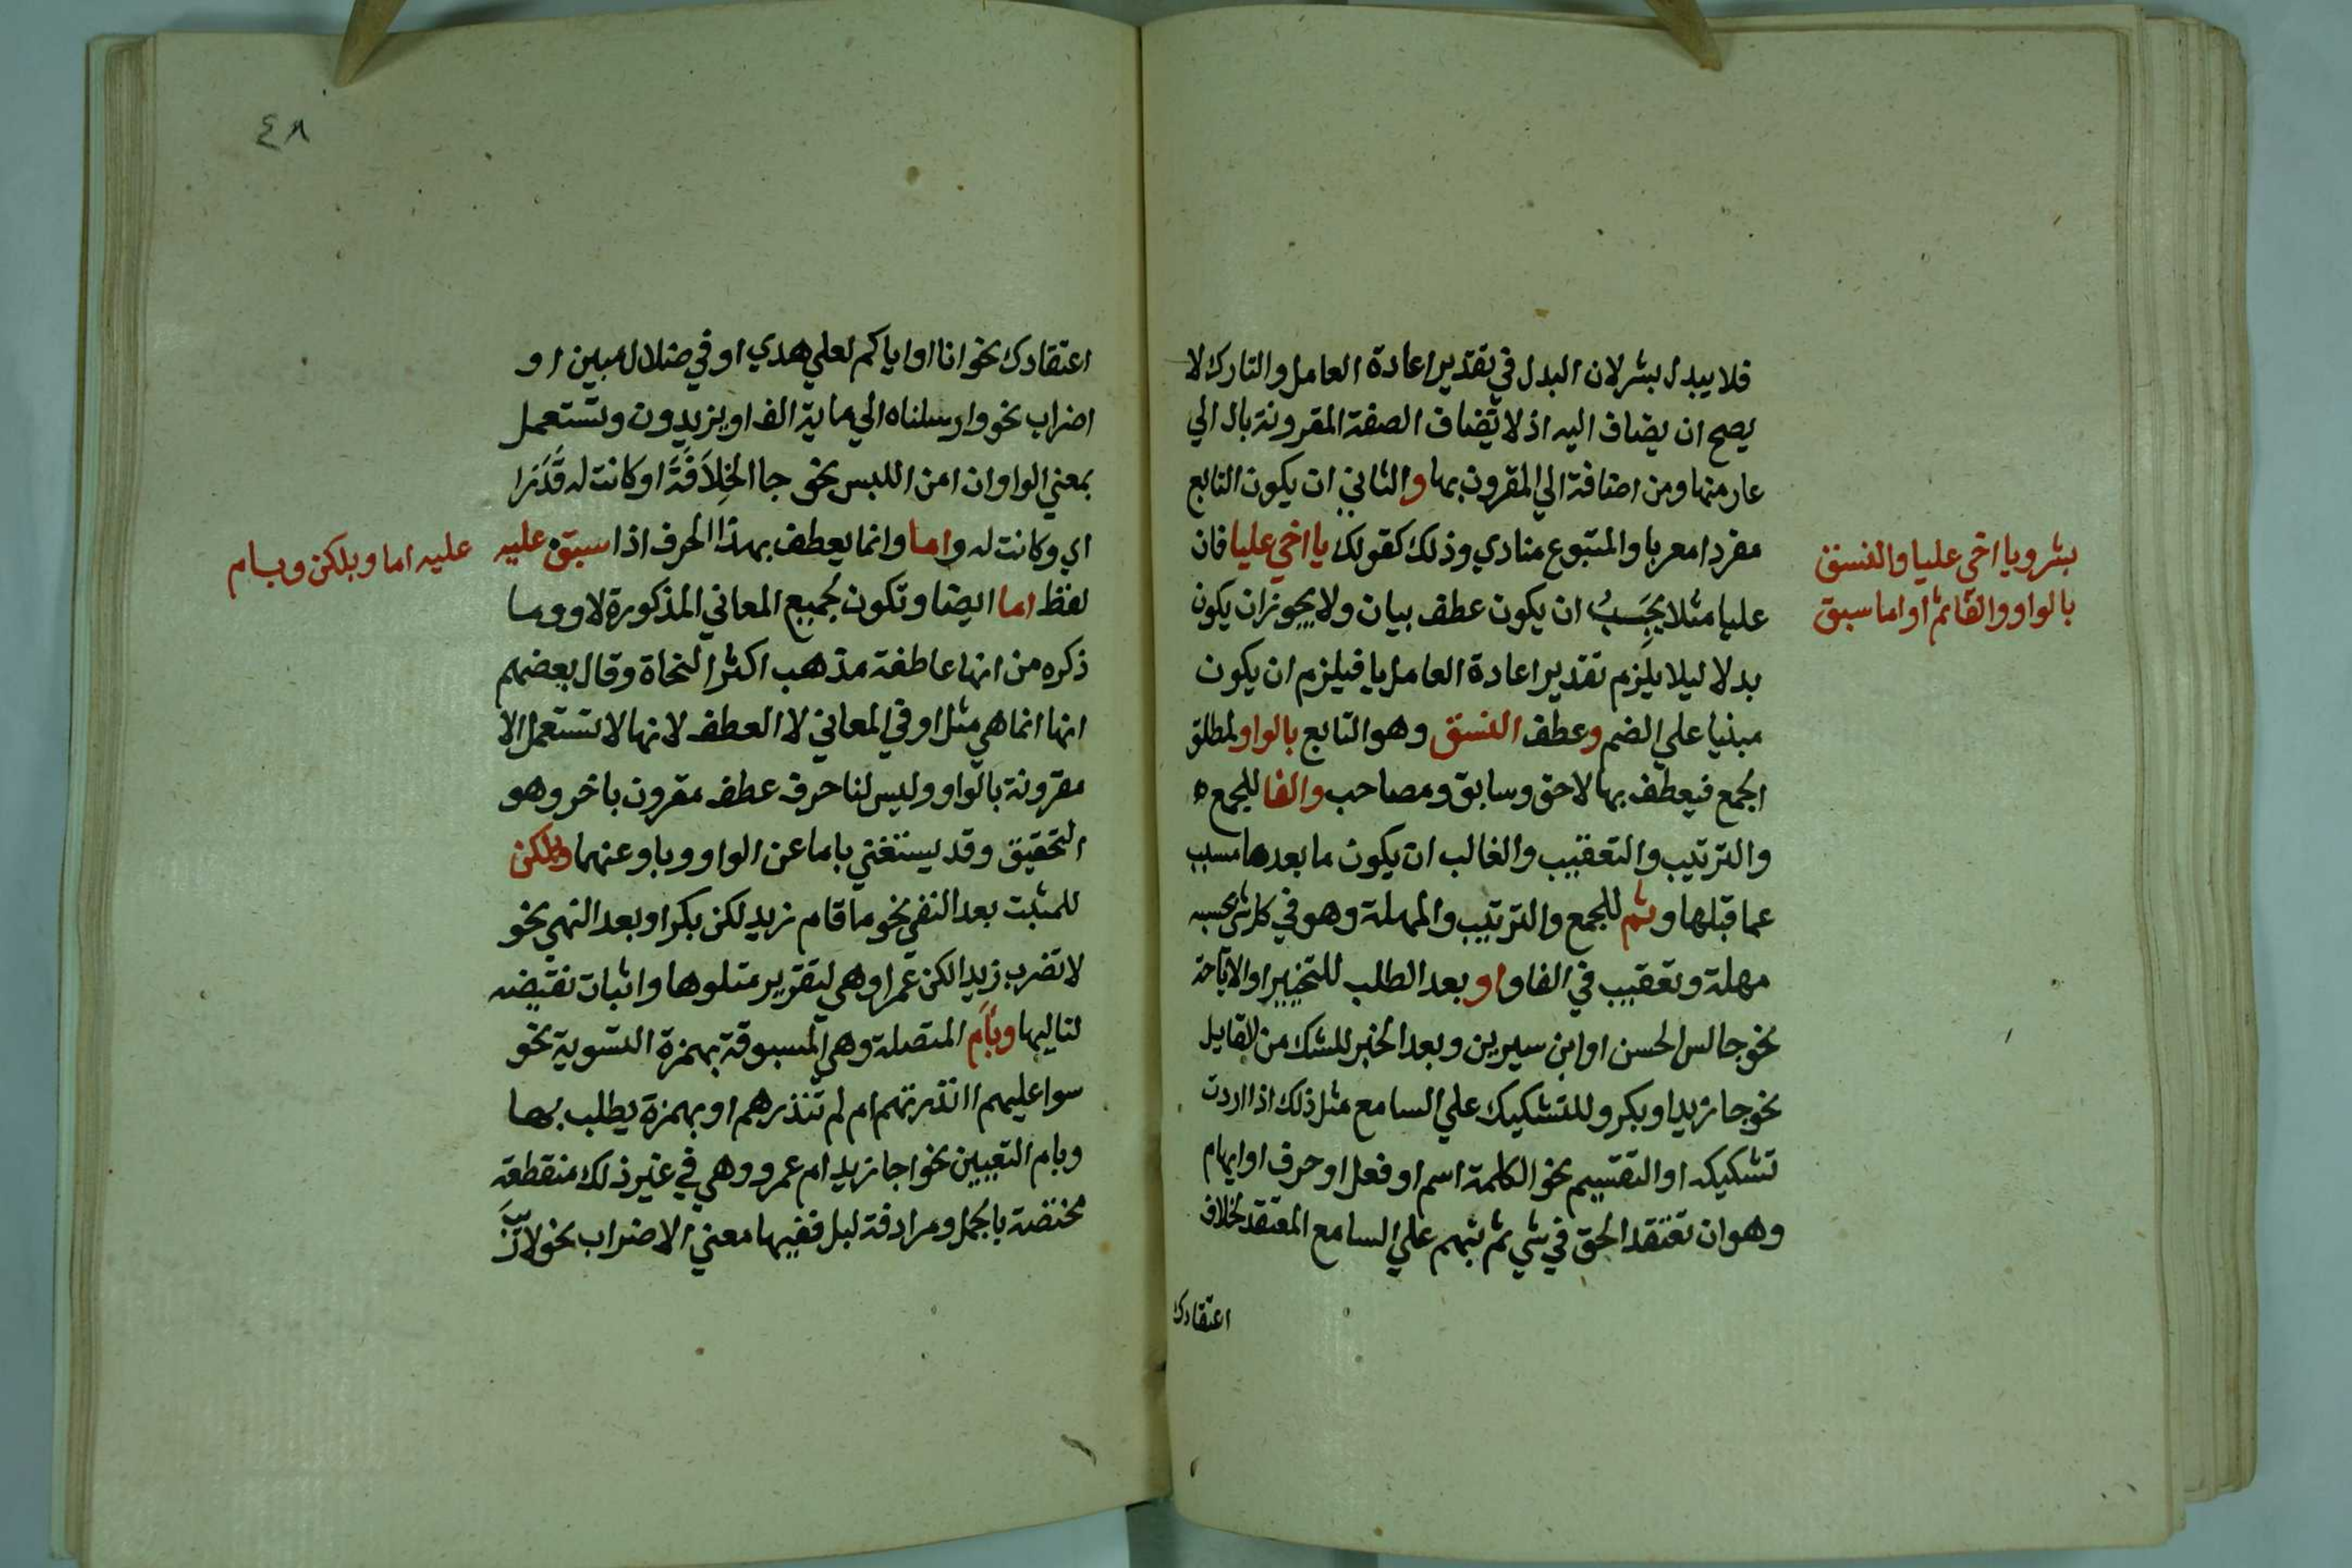 فلا يبدل بشر لان البدل في تقدير اعادة العامل والتارك لا
يصح ان يضاف اليه اذ لا تضاف الصفة المقرونة بال الي
عار منها ومن اضافة الي المقرون بها والثاني ان يكون التابع
مفردا معربا والمتبوع منادي وذلك كقولك يا اخي عليا فان
عليا مثلا يجب ان يكون عطف بيان ولا يجوز ان يكون
بدلا ليلا يلزم تقدير اعادة العامل يا فيلزم ان يكون
مبنيا علي الضم وعطف النسق وهو التابع بالواو لمطلق
الجمع فيعطف بها لاحق وسابق ومصاحب والفا للجمع
والترتيب والتعقيب والغالب ان يكون ما بعدها مسبب
عما قبلها وثم للجمع والترتيب والمهلة وهو في كل شي بحسبه
مهلة وتعقيب في الفا واو بعد الطلب للتخيير او الاباحة
نحو جالس الحسن او ابن سيرين وبعد الخبر للشك من القايل
نحو جا زيد او بكر وللتشكيك علي السامع مثل ذلك اذا اردت
تشكيكه او التقسيم نحو الكلمة اسم او فعل او حرف او ايهام
وهو ان تعتقد الحق في شي ثم تبهم علي السامع المعتقد لخلاف
اعتقادك
بشر ويا اخي عليا والنسق
بالواو والفا ثم او اما سبق
٤٨
اعتقادك نحو انا او اياكم لعلي هدي او في ضلال مبين او
اضراب نحو وارسلناه الي ماية الف او يزيدون وتستعمل
بمعني الواو ان امن اللبس نحو جا الخِلَافَةَ او كانت له قَدَرَا
اي وكانت له واما وانما يعطف بهذا الحرف اذا سبق عليه
لفظ اما ايضا وتكون لجميع المعاني المذكورة لاو وما
ذكره من انها عاطفة مذهب اكثر النحاة وقال بعضهم
انها انما هي مثل او في المعاني لا العطف لانها لا تستعمل الا
مقرونة بالواو وليس لنا حرف عطف مقرون باخر وهو
التحقيق وقد يستغني باما عن الواو وباو عنهما وبلكن
للمثبت بعد النفي نحو ما قام زيد لكن بكر او بعد النهي نحو
لا تضرب زيدا لكن عمرا وهي لتقرير متلوها واثبات نقيضه
لتاليها وبأَم المتصلة وهي المسبوقة بهمزة التسوية نحو
سوا عليهم اانذرتهم ام لم تنذرهم او بهمزة يطلب بها
وبام التعيين نحو اجا زيد ام عمرو وهي في غير ذلك منقطعة
مختصة بالجمل ومرادفة لبل ففيها معني الاضراب نحو لا ريب
عليه اما وبلكن وبام